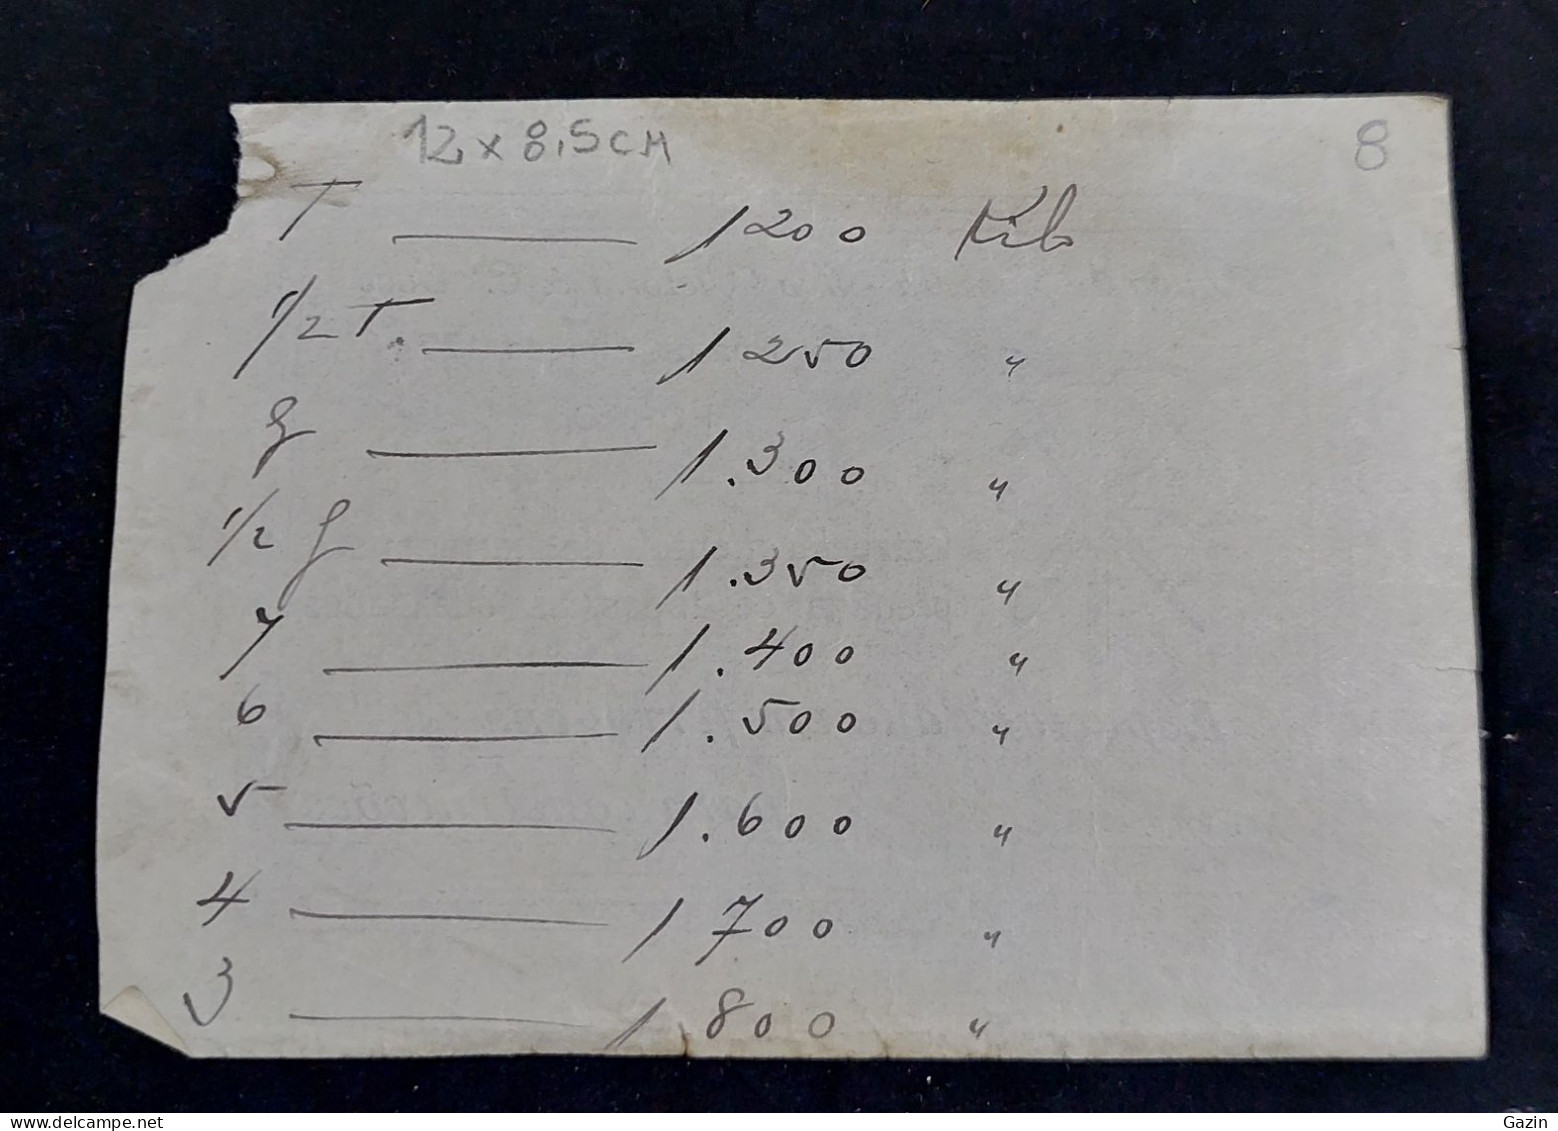 12 x 8,5 CM 8
T — 1200 Kilo
1/2 T. — 1250 "
— 1.300 "
1/2 — 1.350 "
7 — 1.400 "
6 — 1.500 "
5 — 1.600 "
4 — 1700 "
3 — 1800 "
www.delcampe.net
Gazin